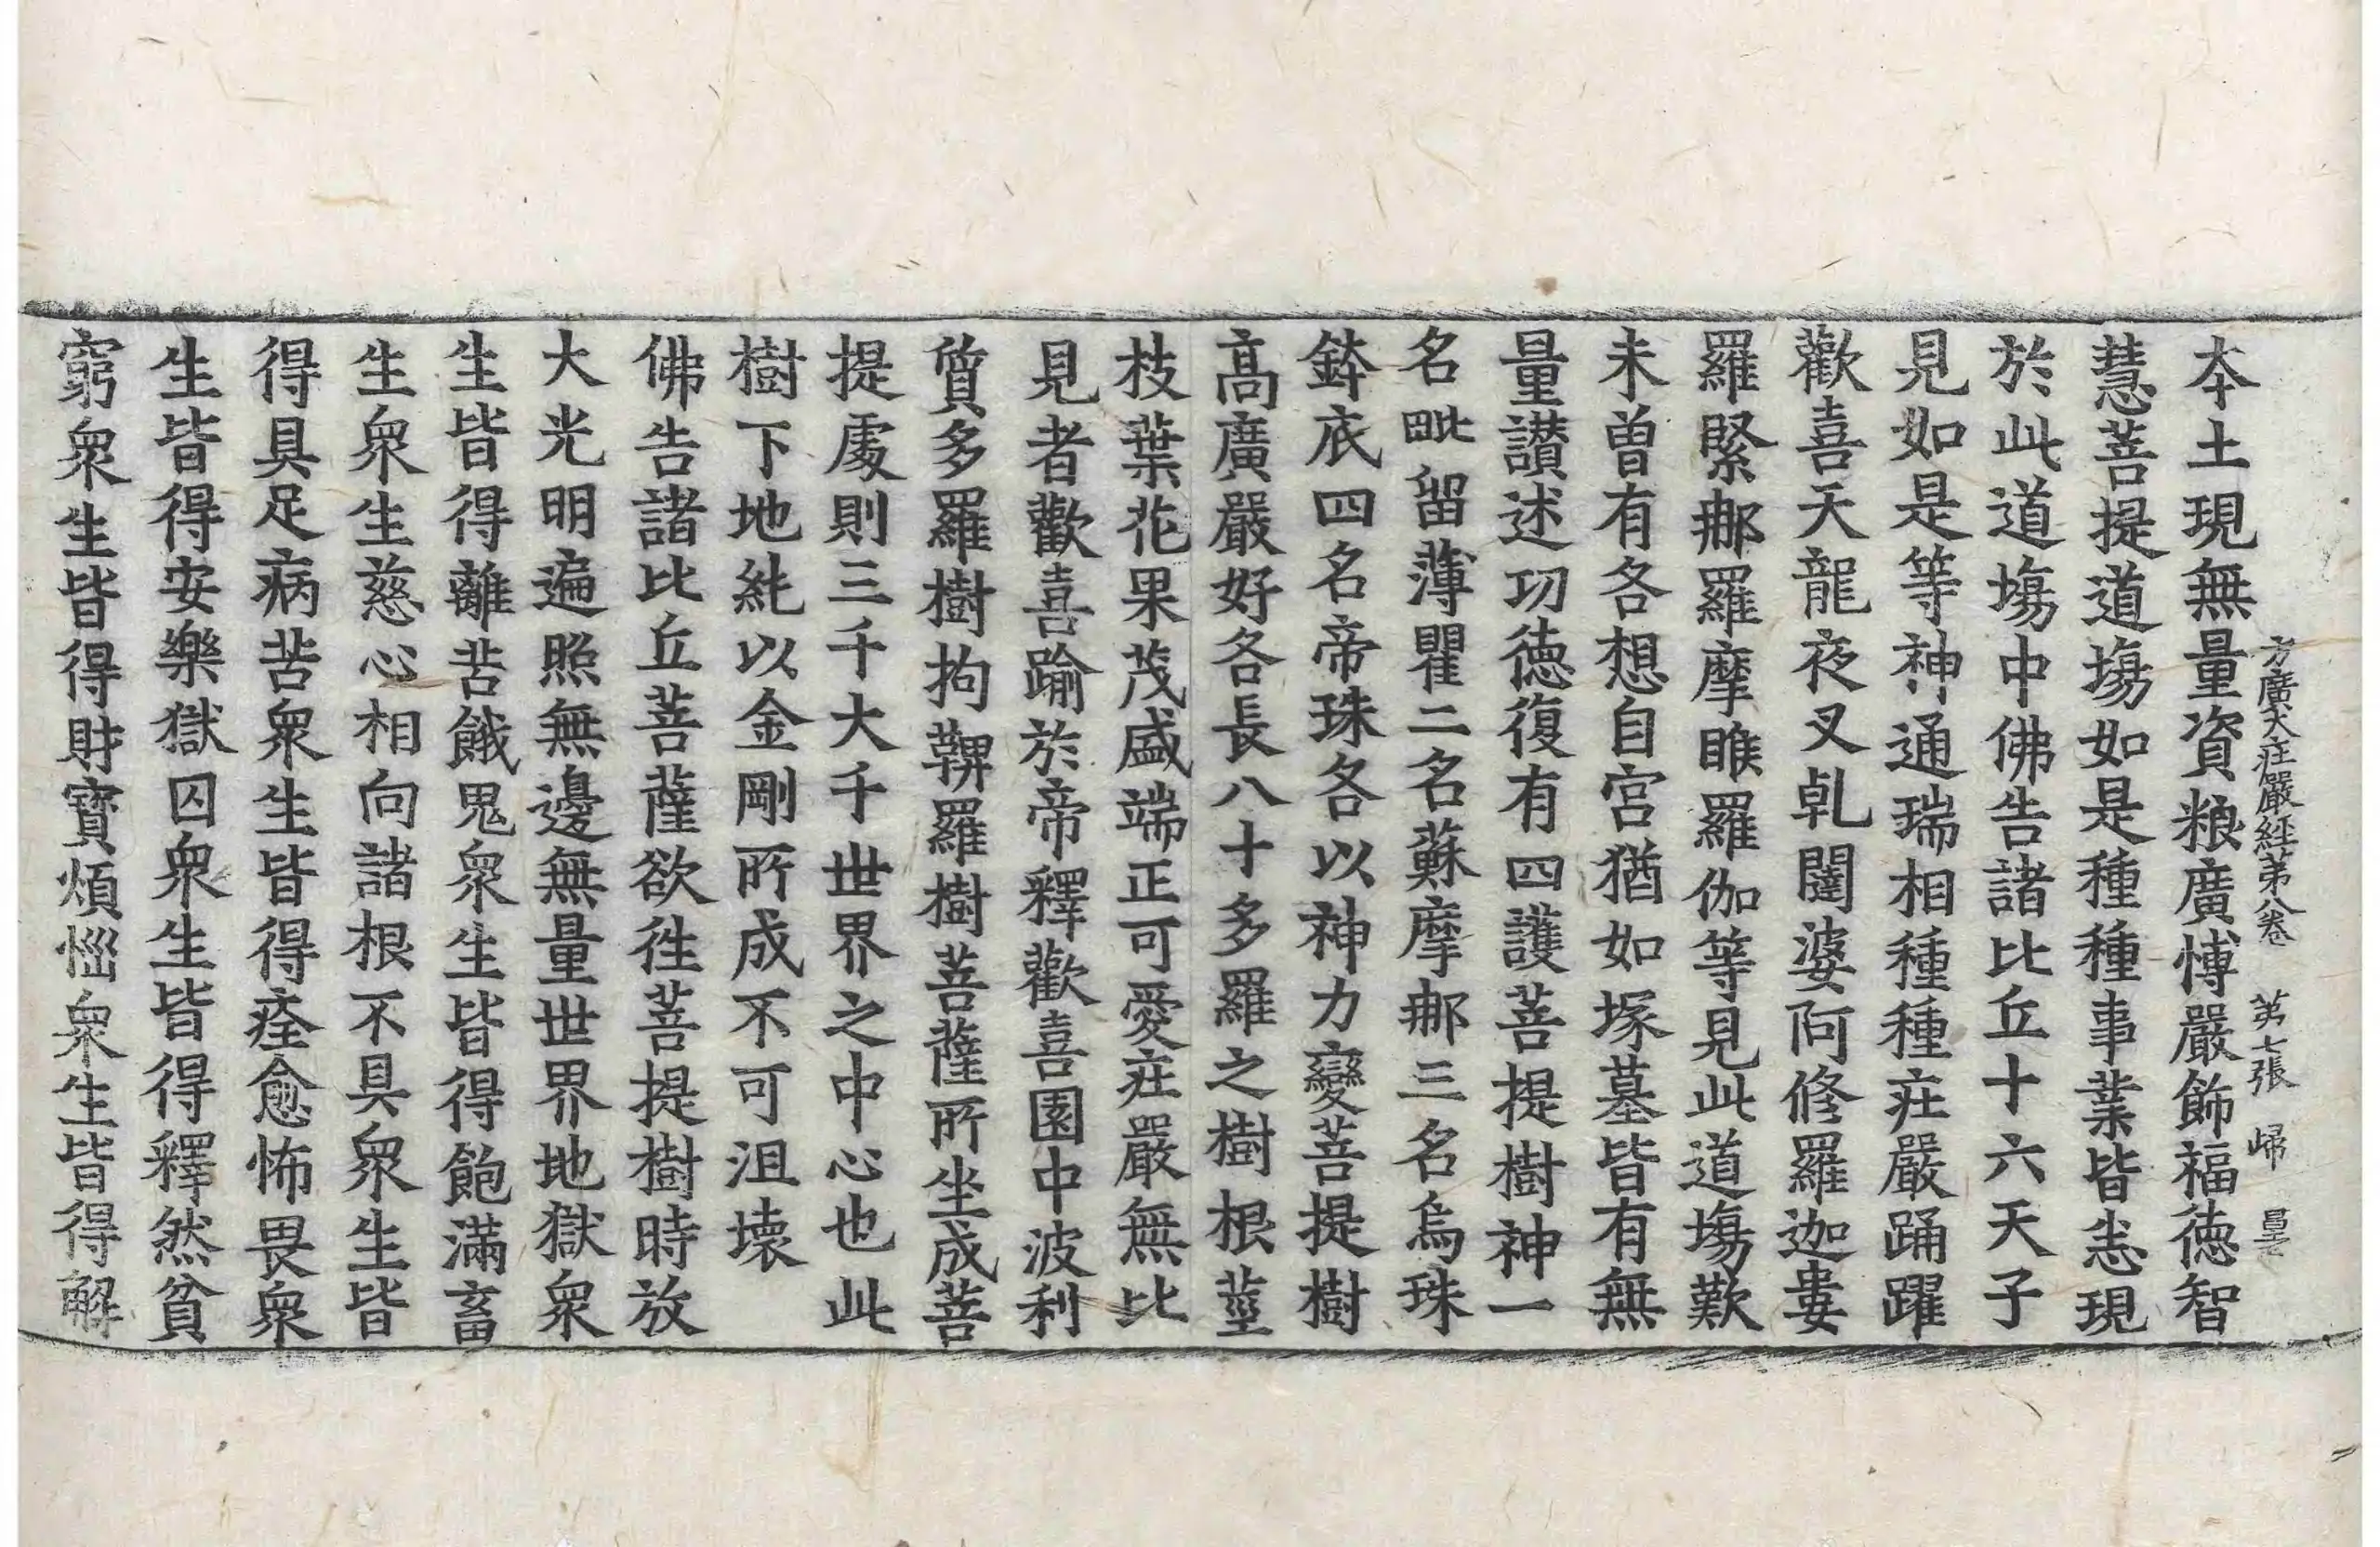 方廣大莊嚴經第八卷 第七張 歸
本土現無量資粮廣愽嚴飾福德智
慧菩提道場如是種種事業皆悉現
於此道場中佛告諸比丘十六天子
見如是等神通瑞相種種莊嚴踊躍
歡喜天龍夜叉乹闥婆阿修羅迦婁
羅緊那羅摩睺羅伽等見此道場歎
未曾有各想自宮猶如塚墓皆有無
量讃述功德復有四護菩提樹神一
名毗留薄瞿二名蘇摩那三名烏珠
鉢底四名帝珠各以神力變菩提樹
高廣嚴好各長八十多羅之樹根莖
枝葉花果茂盛端正可愛莊嚴無比
見者歡喜踰於帝釋歡喜園中波利
質多羅樹拘鞞羅樹菩薩所坐成菩
提處則三千大千世界之中心也此
樹下地純以金剛所成不可沮壞
佛告諸比丘菩薩欲往菩提樹時放
大光明遍照無邊無量世界地獄衆
生皆得離苦餓鬼衆生皆得飽滿畜
生衆生慈心相向諸根不具衆生皆
得具足病苦衆生皆得痊愈怖畏衆
生皆得安樂獄囚衆生皆得釋然貧
窮衆生皆得財寶煩惱衆生皆得解